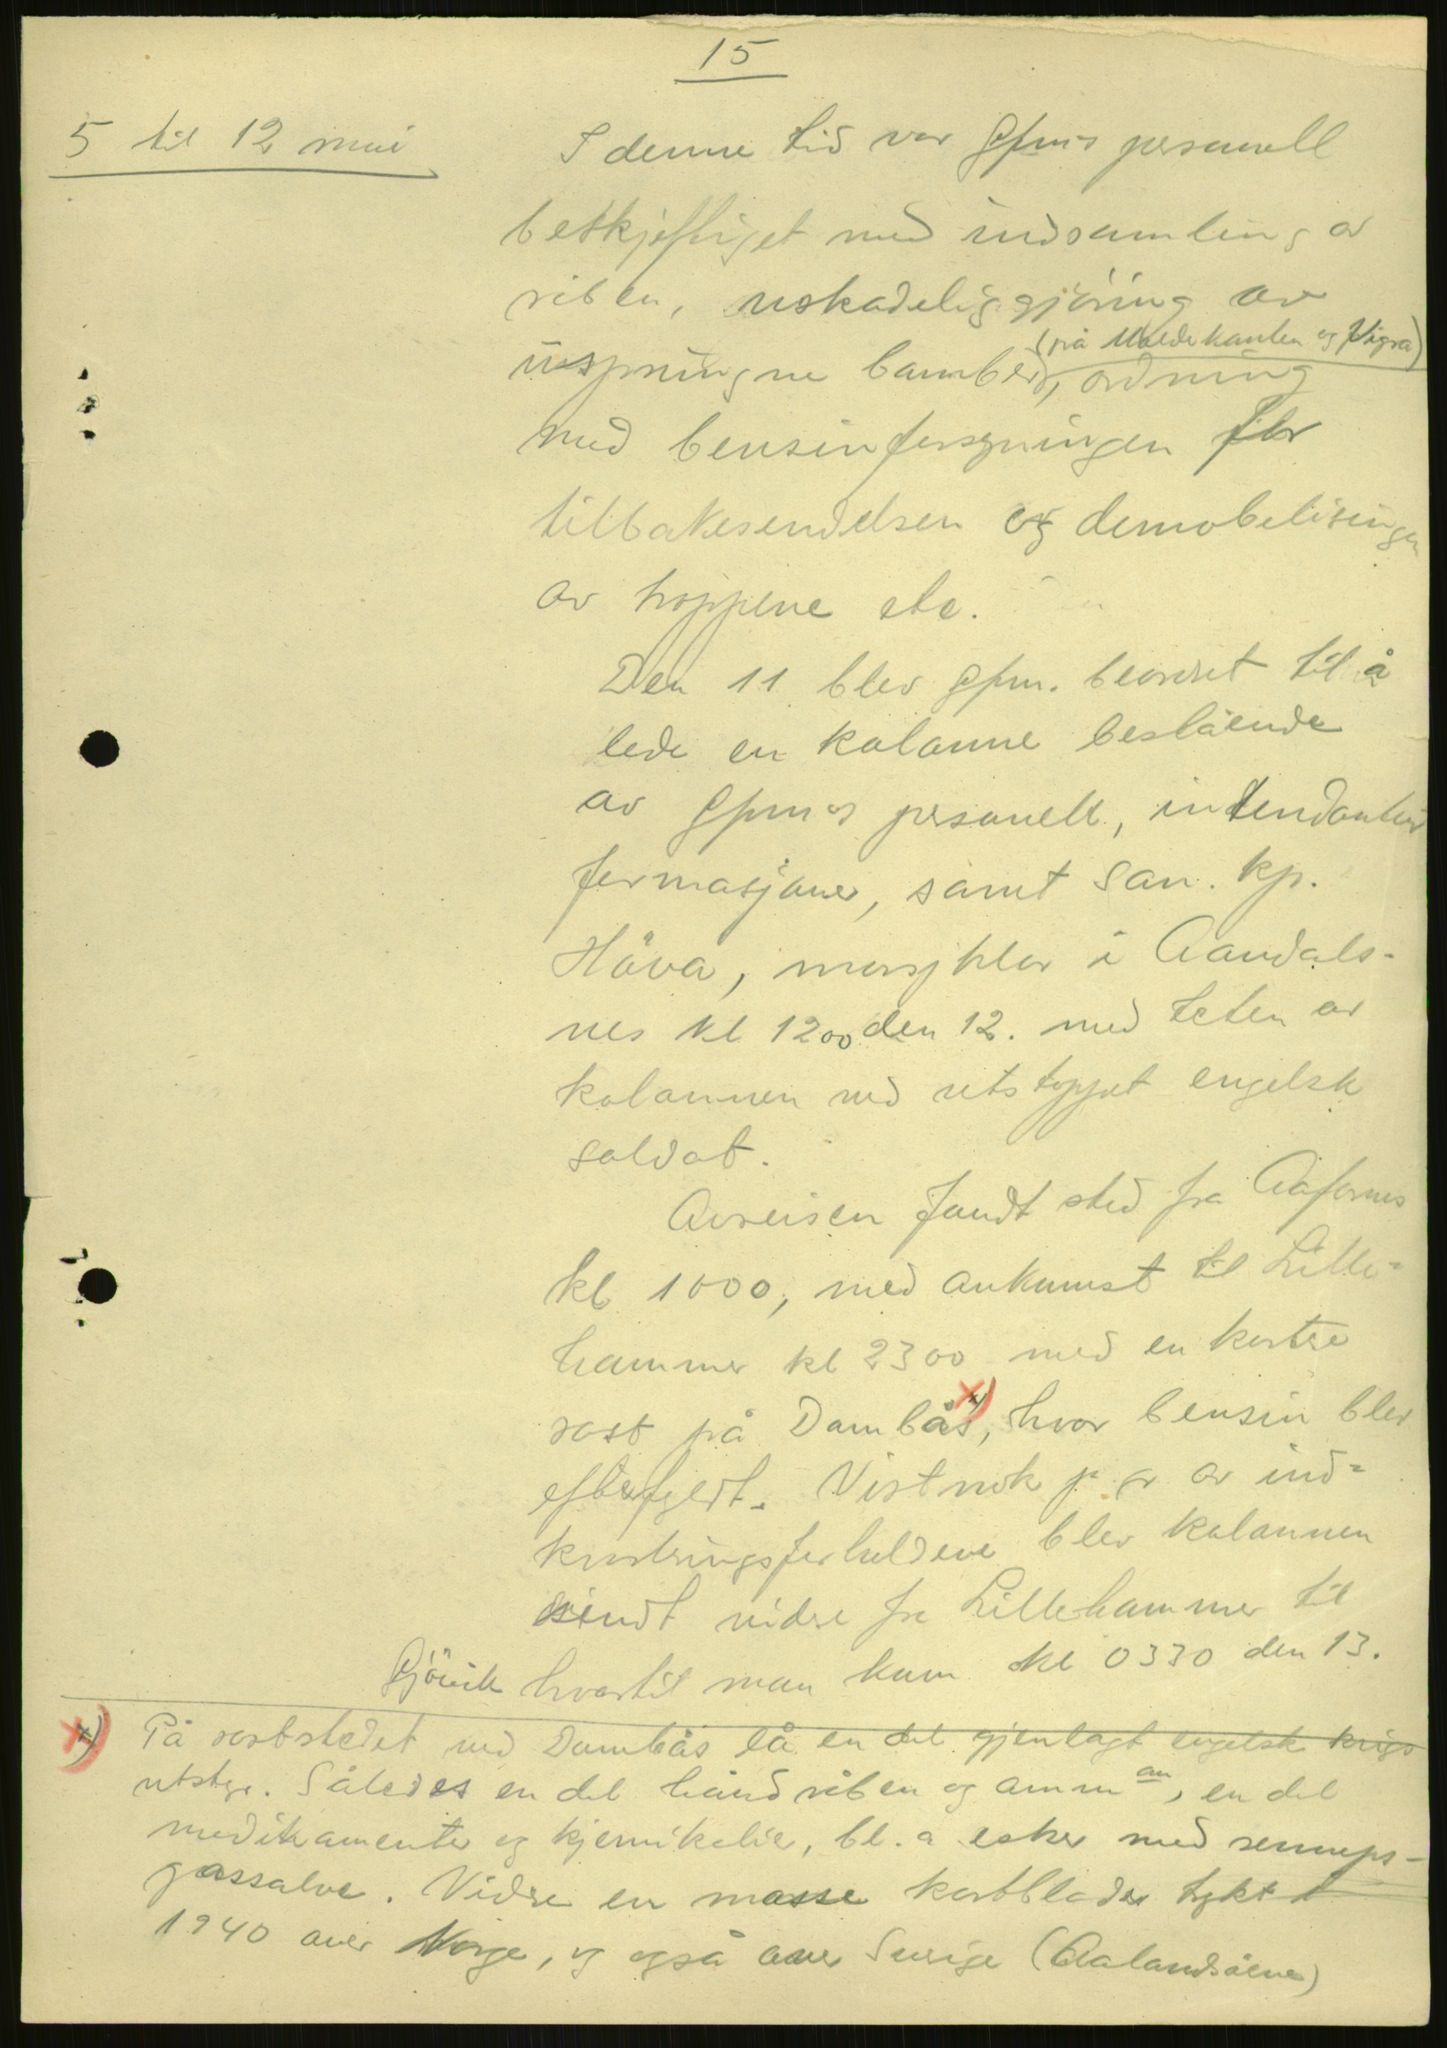 15
5 til 12 mai
I denne tid var Gpm's personell
beskjeftiget med indsamling av
våben, uskadeliggjöring av
usprungne bomber, ordning
(på Moldekanten og Vigra)
med bensinforsyningen for
tilbakesendelsen og demobiliseringen
av troppene etc.
Den 11 blev Gpm. beordret til å
lede en kolonne bestående
av Gpm's personell, intendantur
formasjoner, samt san. kp.
Höva, marsjklar i Aandals-
nes kl 1200 den 12. med teten av
kolonnen ved utstoppet engelsk
soldat.
Avreisen fandt sted fra
kl 1000, med ankomst til Lille-
hammer kl 2300 med en kortere
rast på Dombås x), hvor bensin blev
efterfyldt. Vistnok p. gr av ind-
kvarteringsforholdene blev kolonnen
sendt videre fra Lillehammer til
Gjövik hvortil man kom kl 0330 den 13.
x) På raststedet ved Dombås lå en del gjenlagt engelsk krigs
utstyr. Således en del håndvåben og amm an, en del
medikamenter og kjemikalier, bl. a esker med senneps-
gassalve. Videre en masse kartblader trykt i
1940 over Norge, og også over Sverige (Aalandsöene)